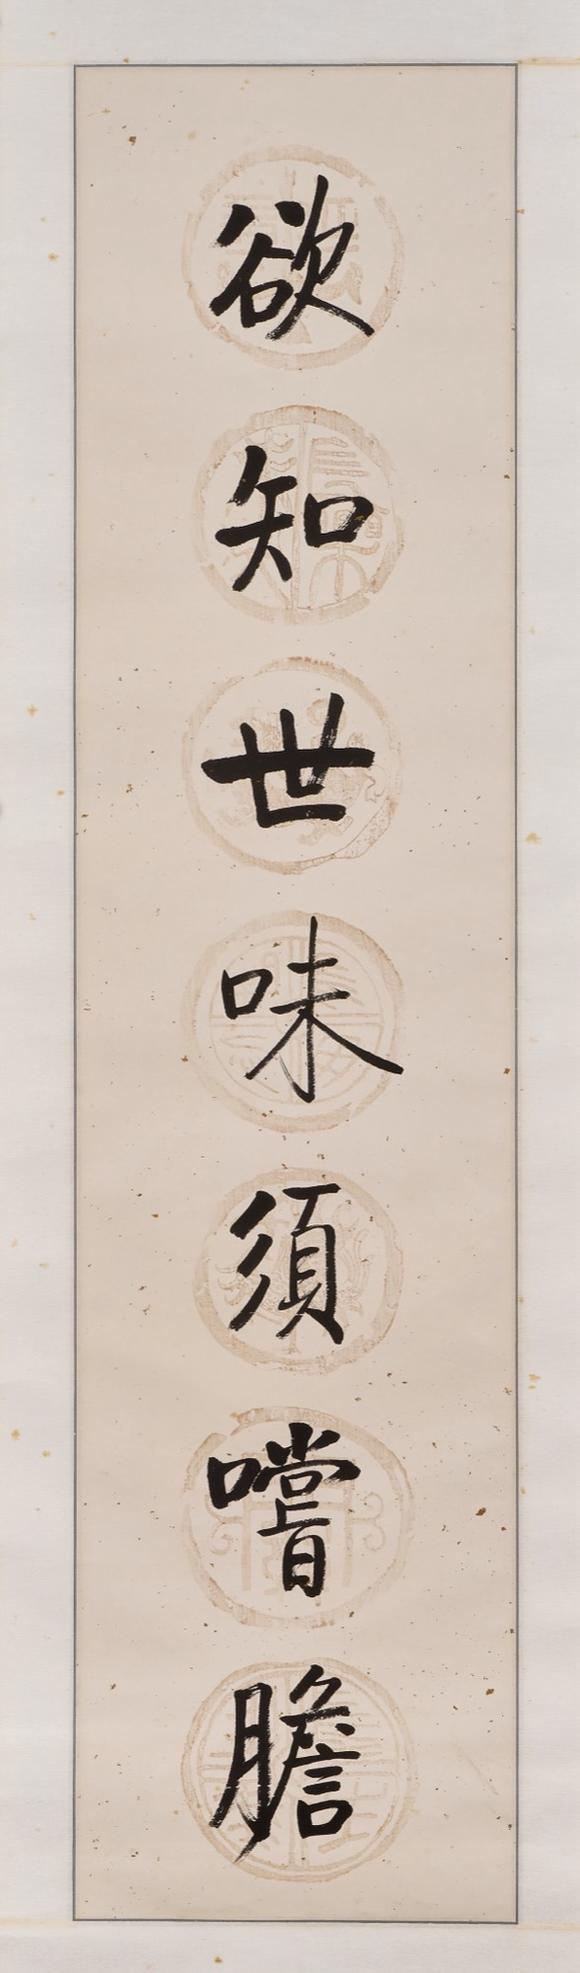 欲知世味須嚐膽